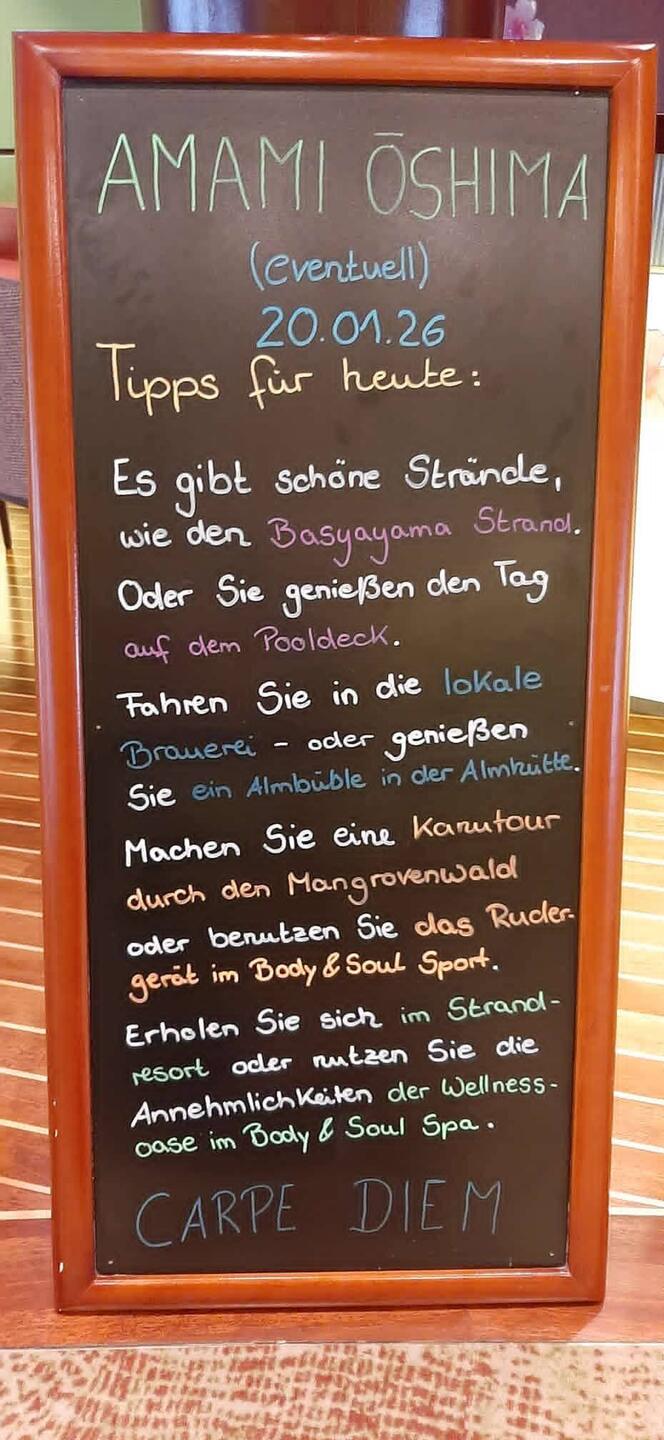 AMAMI ŌSHIMA
(eventuell)
20.01.26
Tipps für heute:
Es gibt schöne Strände,
wie den Basyayama Strand.
Oder Sie genießen den Tag
auf dem Pooldeck.
Fahren Sie in die lokale
Brauerei - oder genießen
Sie ein Almbüble in der Almhütte.
Machen Sie eine Kanutour
durch den Mangrovenwald
oder benutzen Sie das Ruder-
gerät im Body & Soul Sport.
Erholen Sie sich im Strand-
resort oder nutzen Sie die
Annehmlichkeiten der Wellness-
oase im Body & Soul Spa.
CARPE DIEM